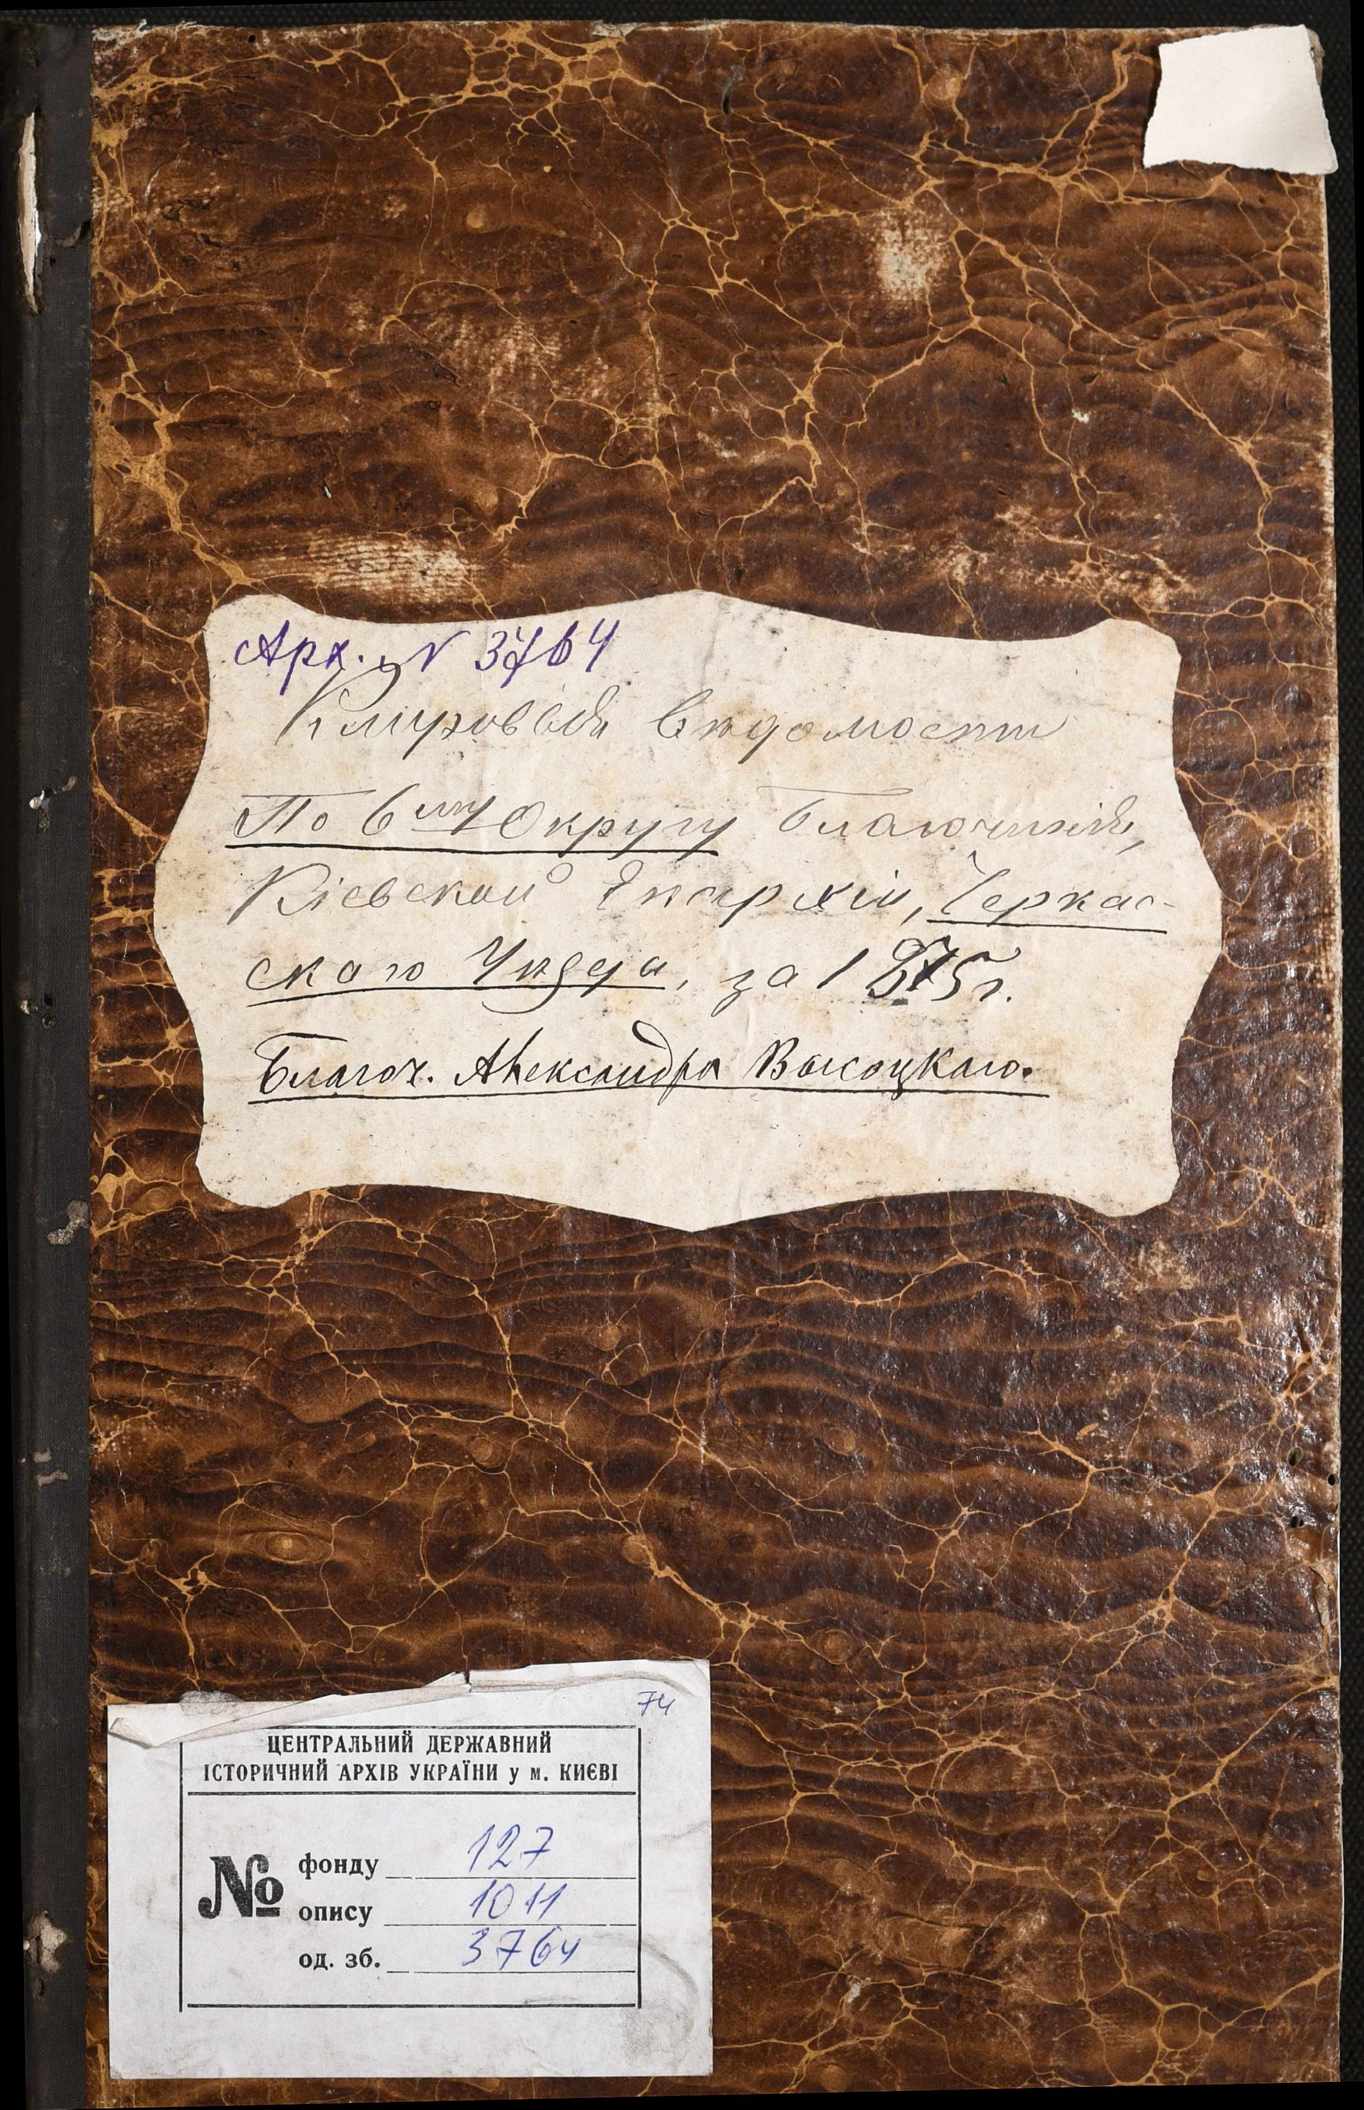 Арх. № 3764
Клировыя ведомости
По 6му Округу Благочинія,
Кіевской Епархіи, Черкас-
скаго Уезда, за 1875 г.
Благоч. Александра Высоцкаго.
74
ЦЕНТРАЛЬНИЙ ДЕРЖАВНИЙ
ІСТОРИЧНИЙ АРХІВ УКРАЇНИ у м. КИЄВІ
№ фонду 127
опису 1011
од. зб. 3764